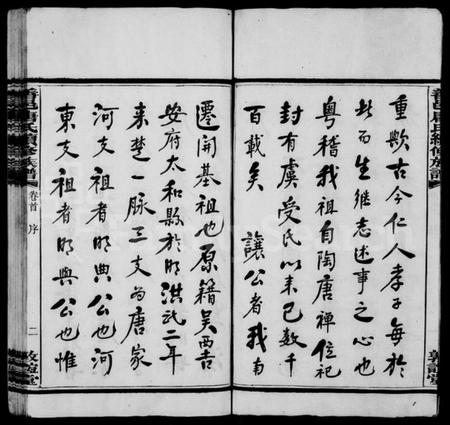 重歟古今仁人孝子每於
此而生繼志述事之心也
粵稽我祖自陶唐禪位祀
封有虞受氏以来已數千
百載矣　讓公者我南
遷開基祖也原籍吴西吉
安府太和縣於明洪武二年
来楚一脉三支為唐家
河支祖者明典公也河
東支祖者明興公也惟
善邑唐氏續修族譜
卷首 序
二
敦誼堂